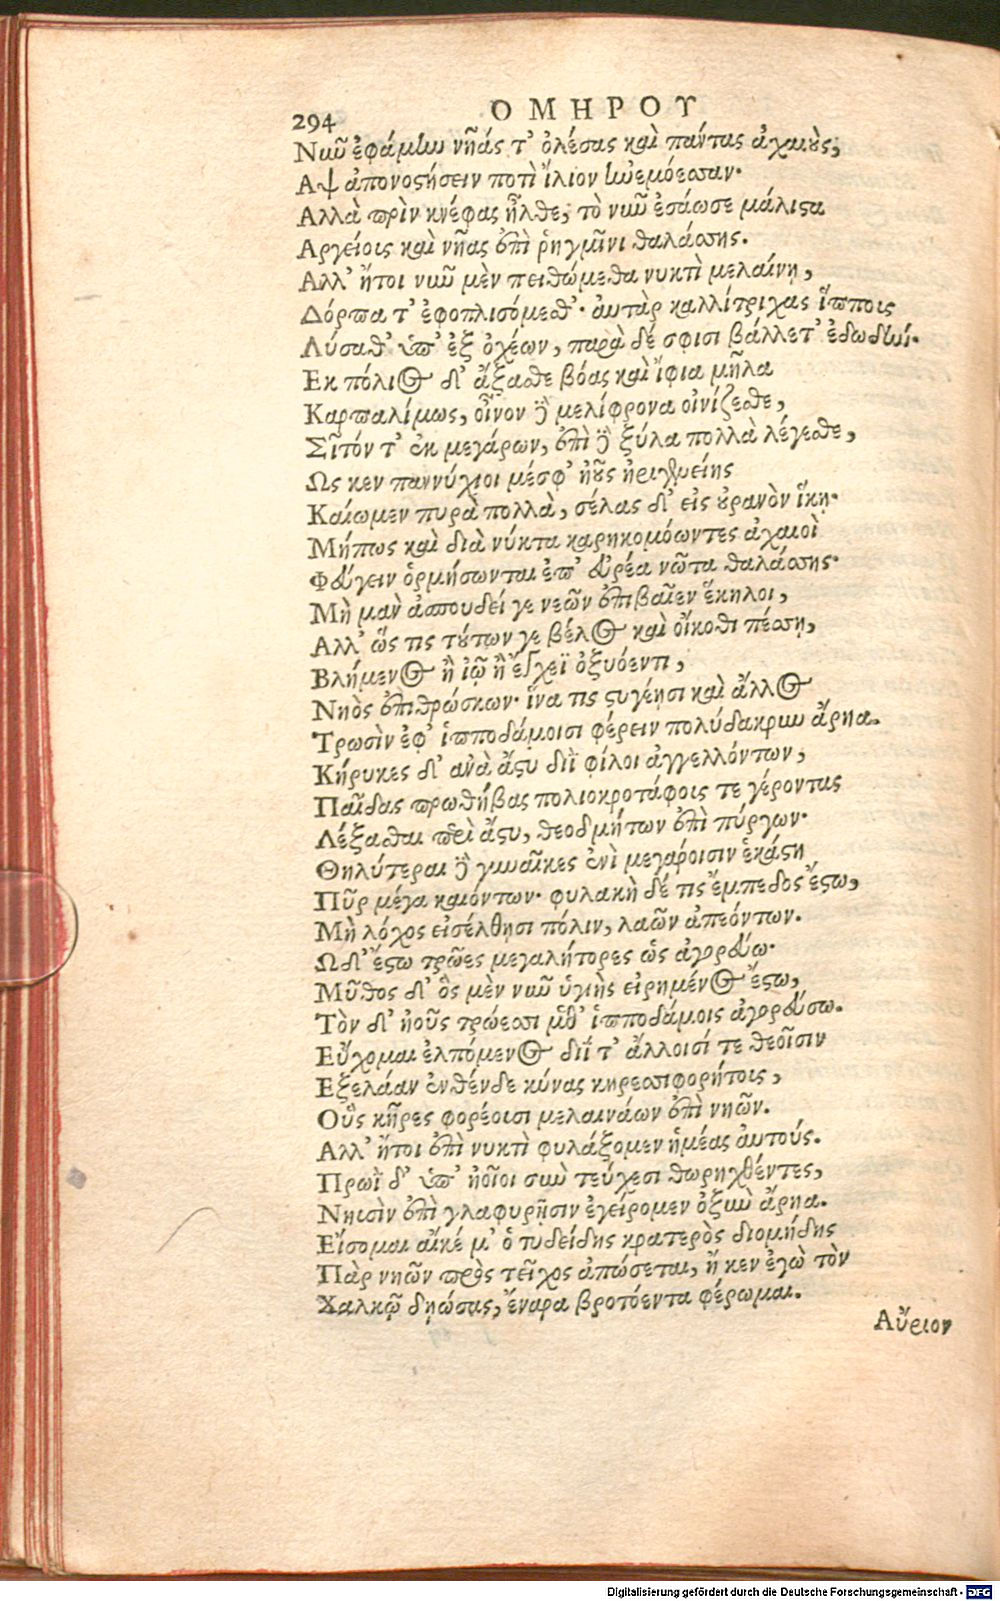 294
ΟΜΗΡΟΥ
Νῦν ἐφάμην νῆάς τ' ὀλέσας καὶ πάντας ἀχαιοὺς,
Αψ ἀπονοστήσειν ποτὶ ἴλιον ἠνεμόεσσαν·
Αλλὰ πρὶν κνέφας ἦλθε, τὸ νῦν ἐσάωσε μάλιστα
Αργείοις καὶ νῆας ἐπὶ ῥηγμῖνι θαλάσσης.
Αλλ' ἤτοι νῦν μὲν πειθώμεθα νυκτὶ μελαίνῃ,
Δόρπα τ' ἐφοπλισόμεσθ'· αὐτὰρ καλλίτριχας ἵπποις
Λύσαθ' ὑπ' ἐξ ὀχέων, παρὰ δέ σφισι βάλλετ' ἐδωδήν·
Εκ πόλιος δ' ἄξασθε βόας καὶ ἴφια μῆλα
Καρπαλίμως, οἶνον δὲ μελίφρονα οἰνίζεσθε,
Σῖτόν τ' ἐκ μεγάρων, ἐπὶ δὲ ξύλα πολλὰ λέγεσθε,
Ως κεν παννύχιοι μέσφ' ἠοῦς ἠριγενείης
Καίωμεν πυρὰ πολλὰ, σέλας δ' εἰς οὐρανὸν ἵκῃ·
Μήπως καὶ διὰ νύκτα καρηκομόωντες ἀχαιοὶ
Φεύγειν ὁρμήσωνται ἐπ' εὐρέα νῶτα θαλάσσης·
Μὴ μὰν ἀσπουδεί γε νεῶν ἐπιβαῖεν ἕκηλοι,
Αλλ' ὥς τις τούτων γε βέλος καὶ οἴκοθι πέσσῃ,
Βλήμενος ἢ ἰῷ ἢ ἔγχεϊ ὀξυόεντι,
Νηὸς ἐπιθρώσκων· ἵνα τις στυγέῃσι καὶ ἄλλος
Τρωσὶν ἐφ' ἱπποδάμοισι φέρειν πολύδακρυν ἄρηα.
Κήρυκες δ' ἀνὰ ἄστυ διῒ φίλοι ἀγγελλόντων,
Παῖδας πρωθήβας πολιοκροτάφοις τε γέροντας
Λέξασθαι περὶ ἄστυ, θεοδμήτων ἐπὶ πύργων·
Θηλύτεραι δὲ γυναῖκες ἐνὶ μεγάροισιν ἑκάστη
Πῦρ μέγα καιόντων· φυλακὴ δέ τις ἔμπεδος ἔστω,
Μὴ λόχος εἰσέλθῃσι πόλιν, λαῶν ἀπεόντων.
Ωδ' ἔστω τρῶες μεγαλήτορες ὡς ἀγορεύω·
Μῦθος δ' ὃς μὲν νῦν ὑγιὴς εἰρημένος ἔστω,
Τὸν δ' ἠοῦς τρώεσσι μεθ' ἱπποδάμοις ἀγορεύσω.
Εὔχομαι ἐλπόμενος διΐ τ' ἄλλοισί τε θεοῖσιν
Εξελάαν ἐνθένδε κύνας κηρεσσιφορήτοις,
Οὓς κῆρες φορέοισι μελαινάων ἐπὶ νηῶν.
Αλλ' ἤτοι ἐπὶ νυκτὶ φυλάξομεν ἡμέας αὐτούς.
Πρωῒ δ' ὑπ' ἠοῖοι σὺν τεύχεσι θωρηχθέντες,
Νηυσὶν ἐπὶ γλαφυρῇσιν ἐγείρομεν ὀξὺν ἄρηα.
Εἴσομαι αἴκέ μ' ὁ τυδείδης κρατερὸς διομήδης
Πὰρ νηῶν πρὸς τεῖχος ἀπώσεται, ἤ κεν ἐγὼ τὸν
Χαλκῷ δῃώσας, ἔναρα βροτόεντα φέρωμαι.
Αὔριον
Digitalisierung gefördert durch die Deutsche Forschungsgemeinschaft - DFG